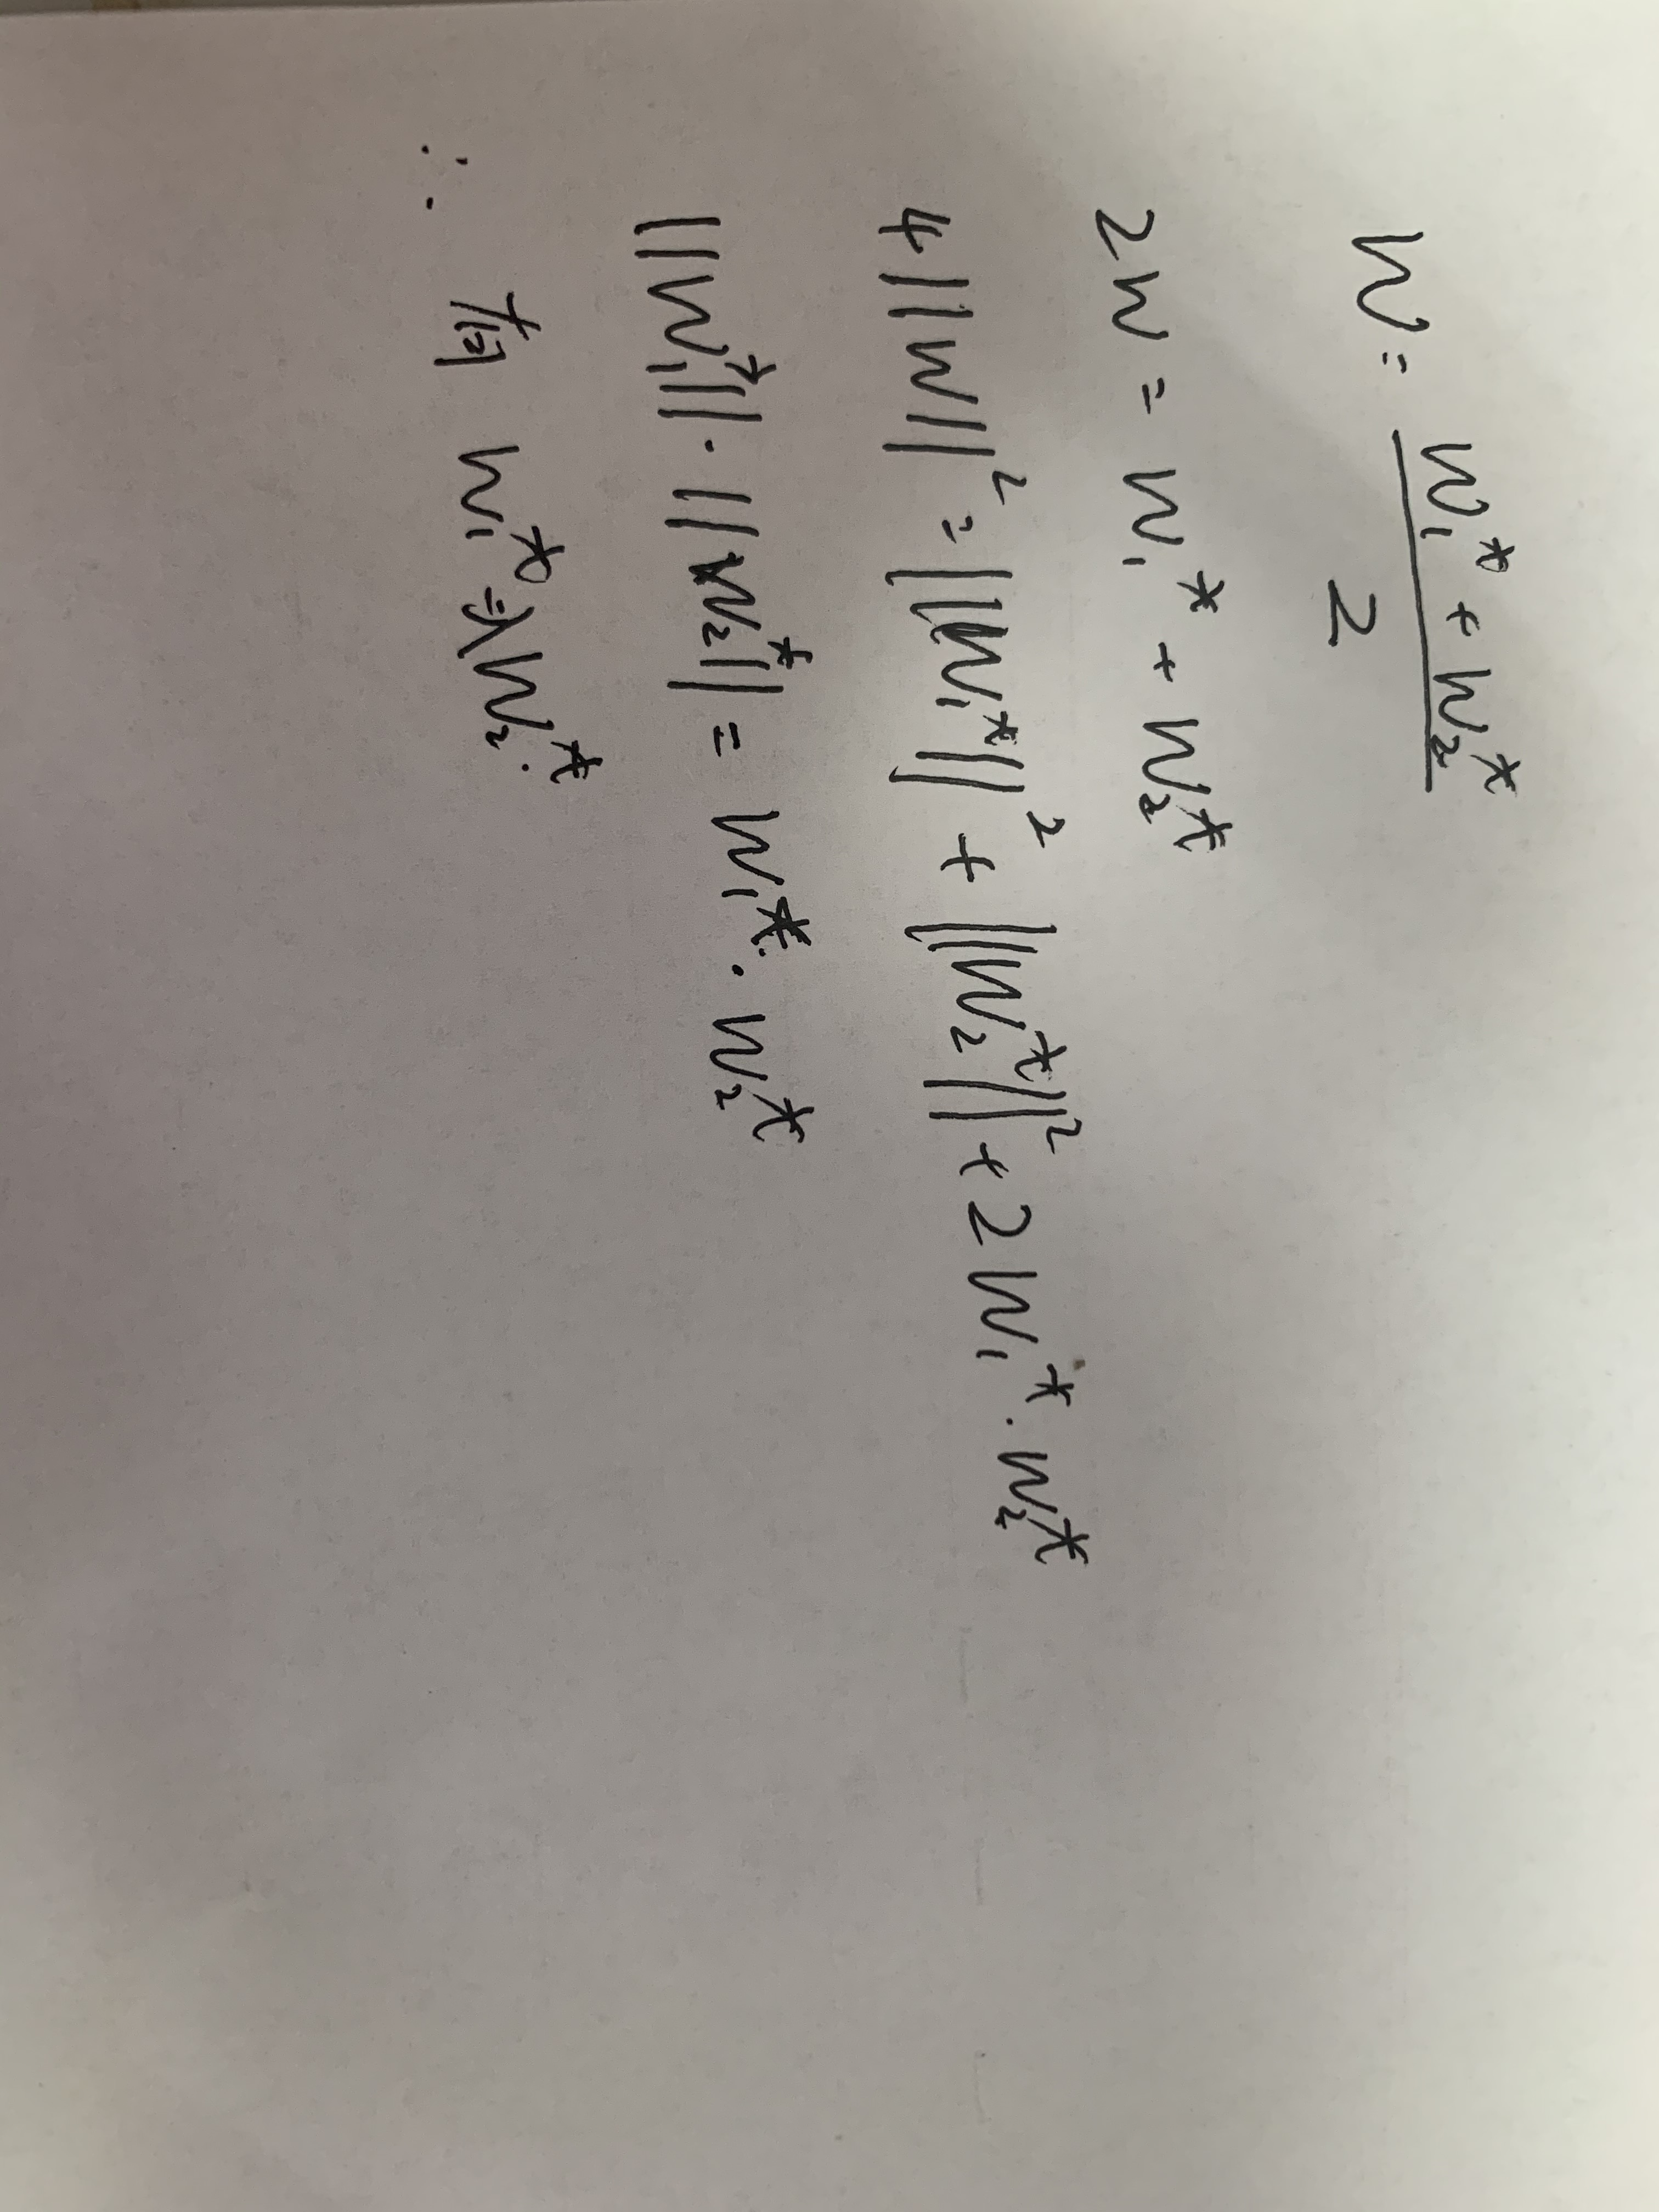 w = \frac{w_1^* + w_2^*}{2}
2w = w_1^* + w_2^*
4||w||^2 = ||w_1^*||^2 + ||w_2^*||^2 + 2w_1^* · w_2^*
||w_1^*|| · ||w_2^*|| = w_1^* · w_2^*
∴ w_1^* = λw_2^*.